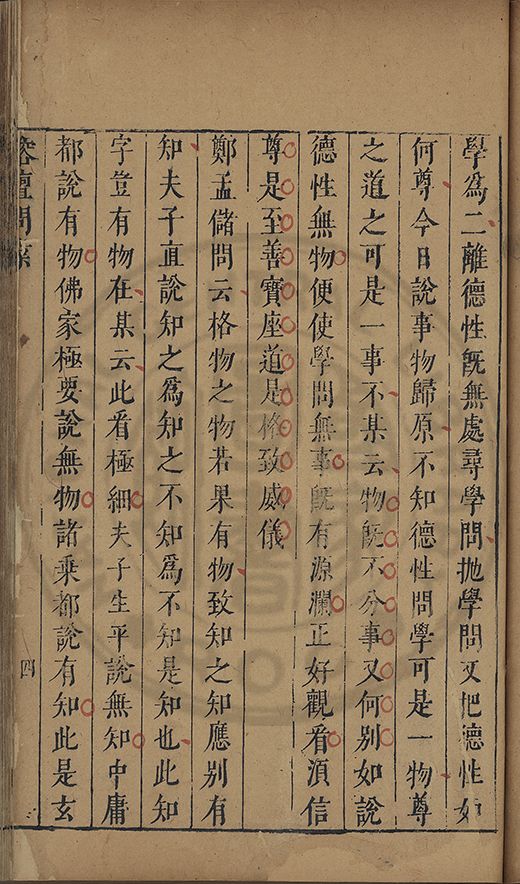 學爲二離德性旣無處尋學問抛學問又把德性如
何尊今日說事物歸原不知德性問學可是一物尊
之道之可是一事不某云物旣不分事又何别如說
德性無物便使學問無事旣有源瀾正好觀看須信
尊是至善寶座道是格致威儀
鄭孟儲問云格物之物若果有物致知之知應别有
知夫子直說知之爲知之不知爲不知是知也此知
字豈有物在某云此看極細夫子生平說無知中庸
都說有物佛家極要說無物諸乘都說有知此是玄
榕壇問業
四